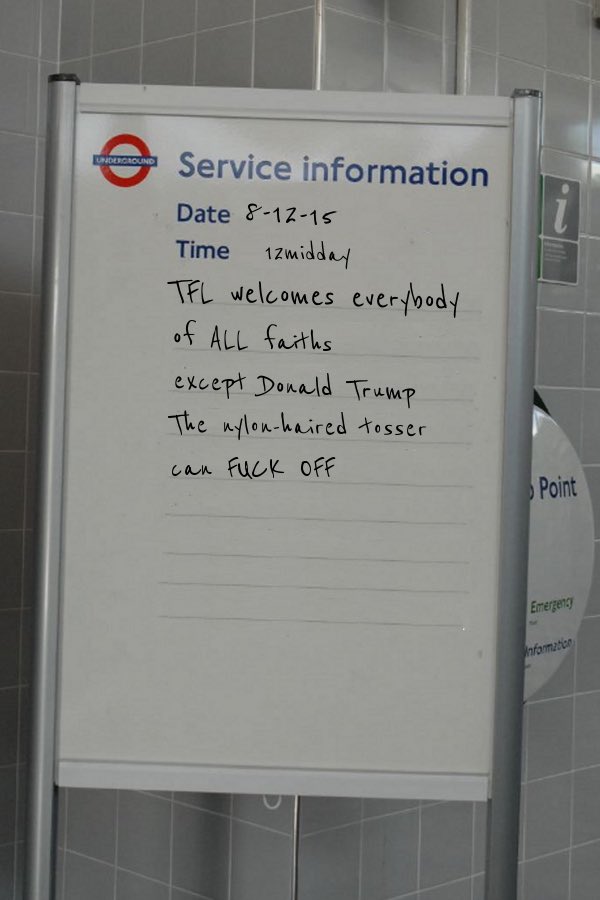 UNDERGROUND
Service information
Date 8-12-15
Time 12midday
TFL welcomes everybody
of ALL faiths
except Donald Trump
The nylon-haired tosser
can FUCK OFF
i
Point
Emergency
Information